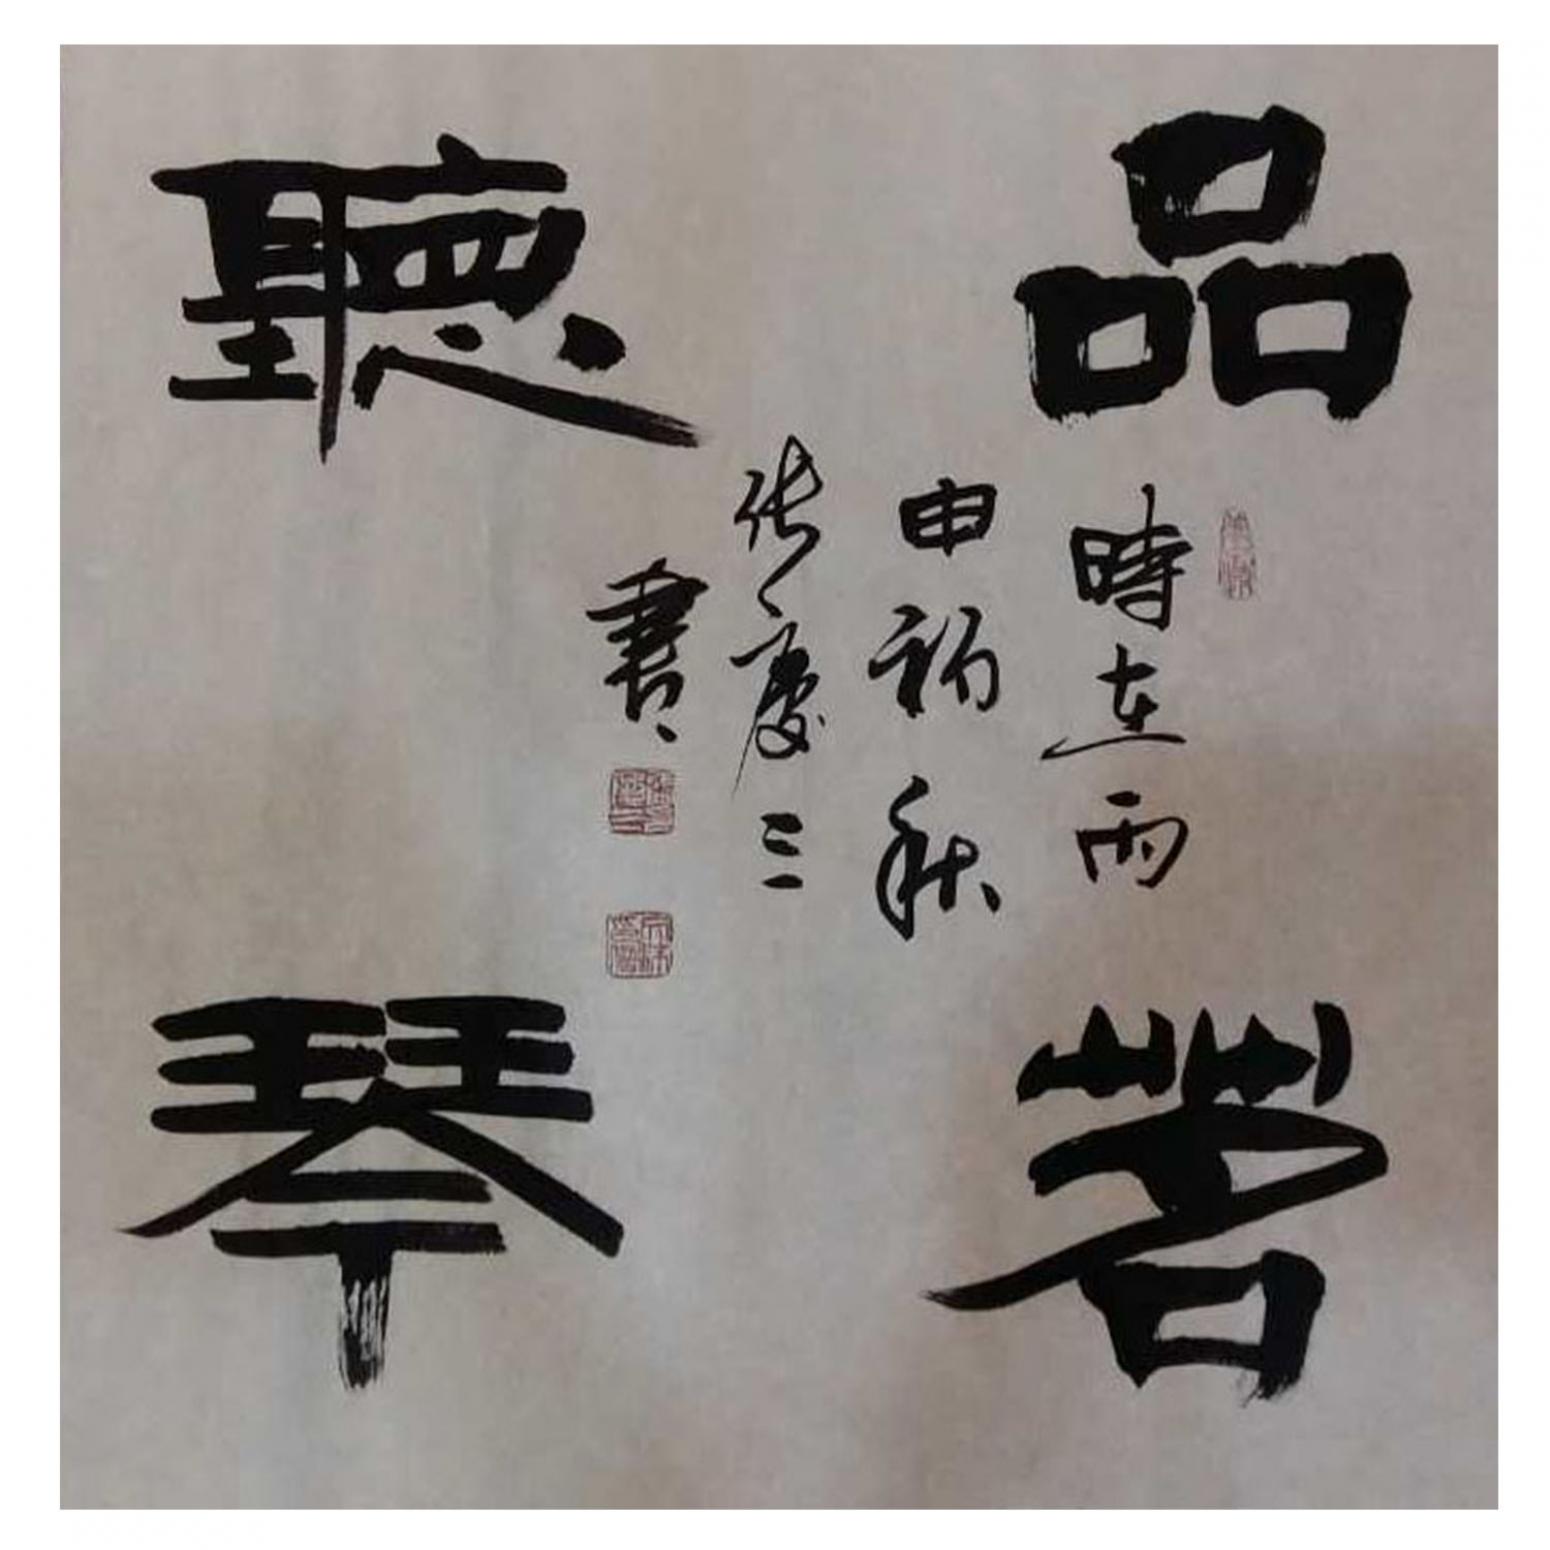 品茗
聽琴
時在丙
申初秋
張慶三
書